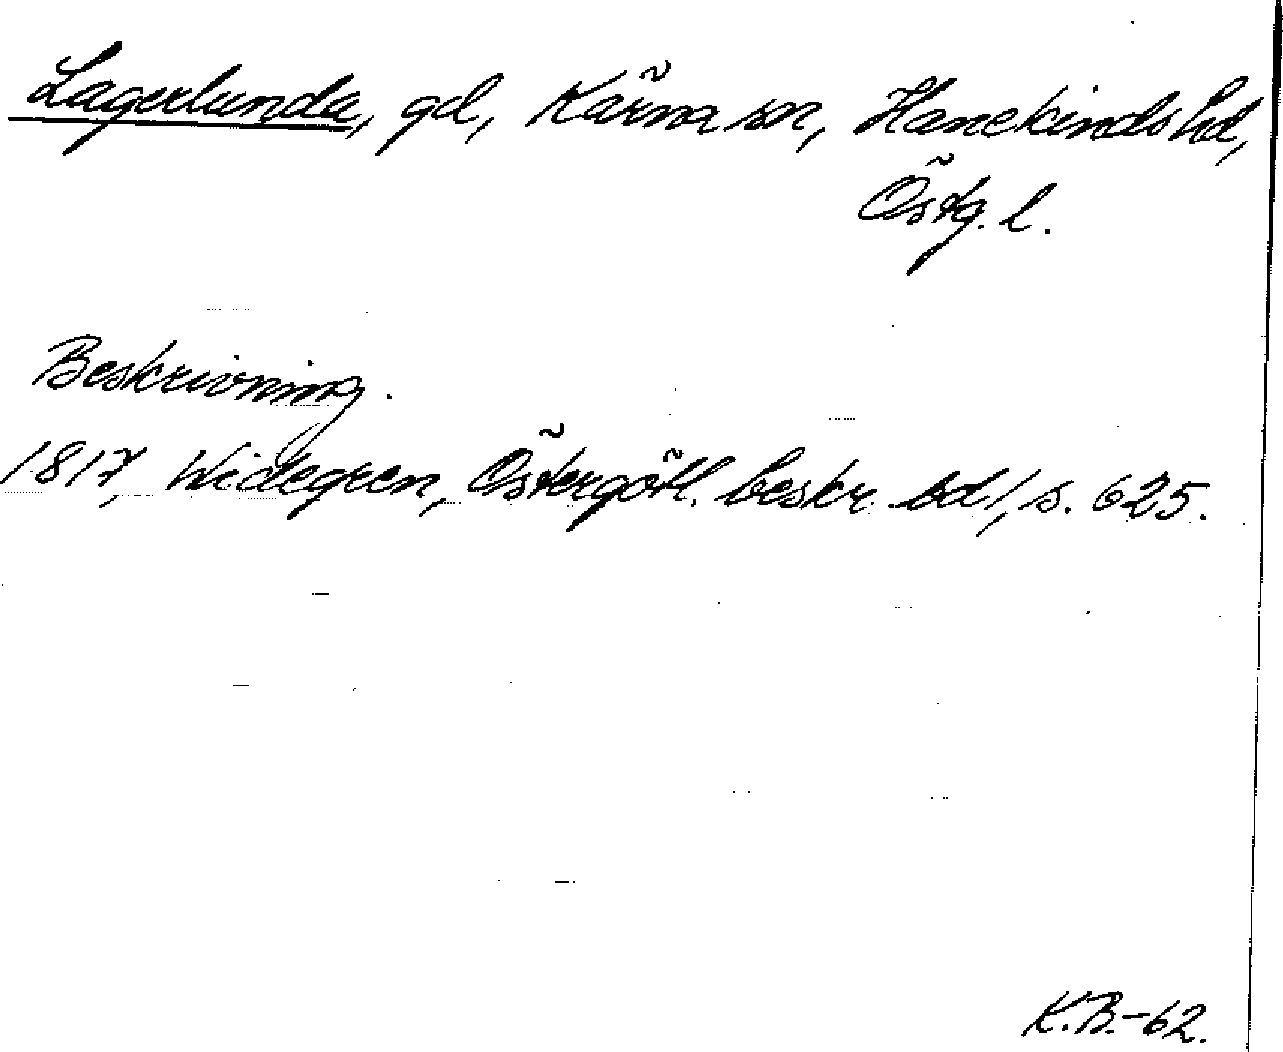 Lagerlunda, gd, Kärna sn, Hanekinds hd,
Östg. l.
Beskrivning.
1817, Widegren, Östergötl. beskr. bd 1, s. 625.
K.B.-62.